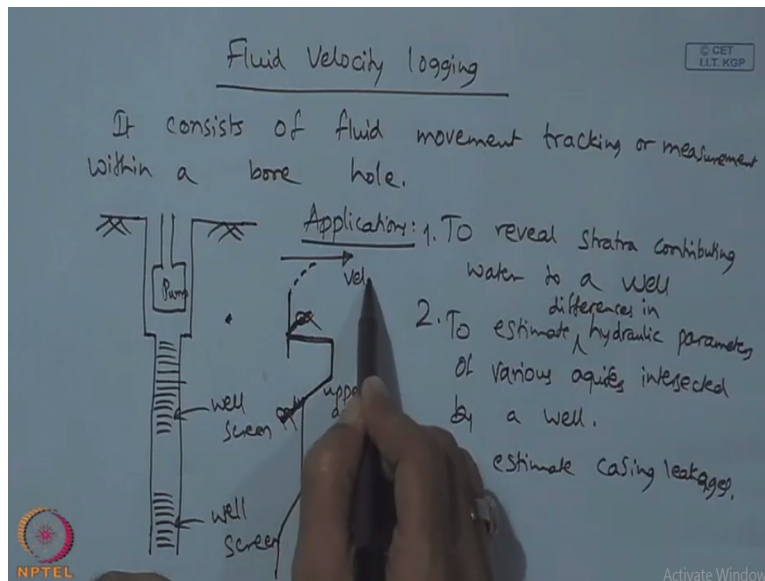 Fluid Velocity logging
© CET
I.I.T. KGP
It consists of fluid movement tracking or measurement
within a bore hole.
Application: 1. To reveal stratra contributing
water to a well
2. To estimate differences in hydraulic parameters
of various aquifers intersected
by a well.
estimate casing leakages.
Pump
Vel
well
screen
well
screen
NPTEL
Activate Window